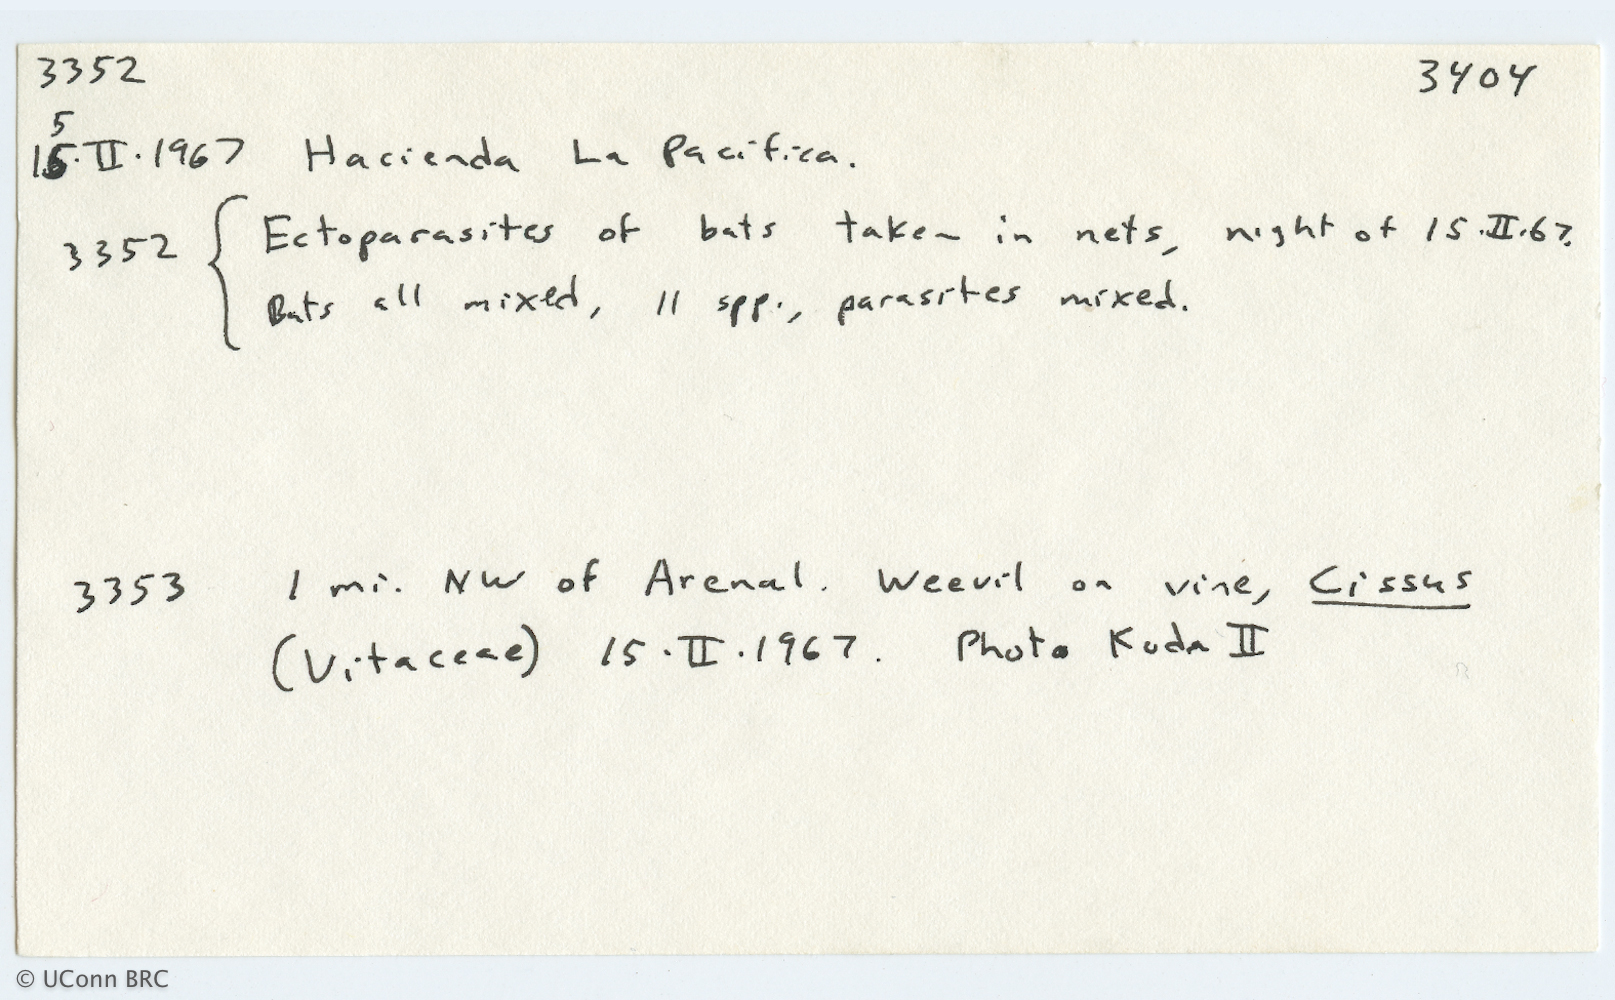 3352 3404
5
15.II.1967 Hacienda La Pacifica.
3352 { Ectoparasites of bats taken in nets, night of 15.II.67.
Bats all mixed, 11 spp., parasites mixed.
3353 1 mi. NW of Arenal. Weevil on vine, Cissus
(Vitaceae) 15.II.1967. Photo Koda II
© UConn BRC